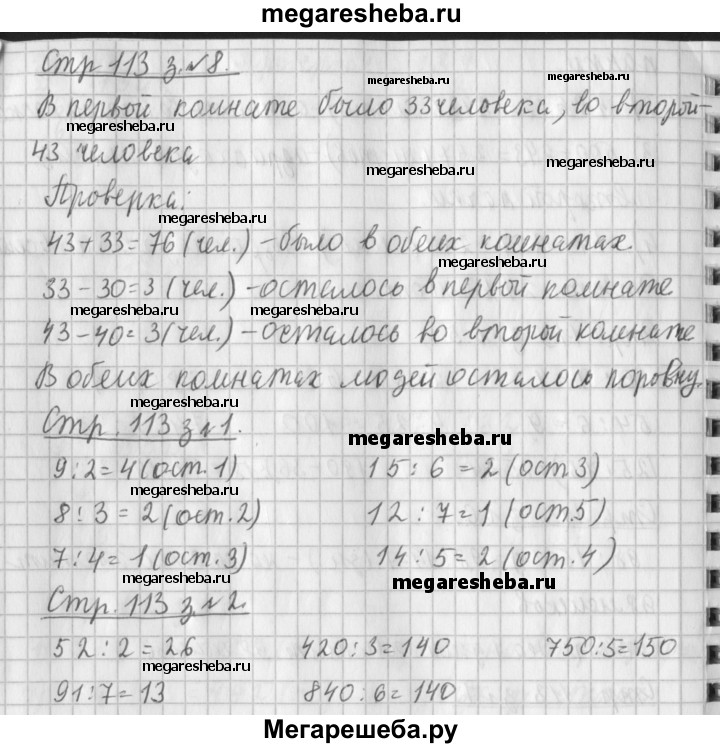 megaresheba.ru
Стр 113 з.№8.
megaresheba.ru megaresheba.ru
В первой комнате было 33 человека, во второй-
megaresheba.ru
43 человека
megaresheba.ru
Проверка:
megaresheba.ru
43+33=76 (чел.) - было в обеих комнатах.
megaresheba.ru
33-30=3 (чел.) - осталось в первой комнате
megaresheba.ru megaresheba.ru
43-40=3 (чел.) - осталось во второй комнате
В обеих комнатах людей осталось поровну.
megaresheba.ru
Стр. 113 з №1.
megaresheba.ru
9:2=4 (ост. 1) 15:6=2 (ост 3)
megaresheba.ru
8:3=2 (ост. 2) 12:7=1 (ост.5)
7:4=1 (ост. 3) 14:5=2 (ост. 4)
megaresheba.ru megaresheba.ru
Стр. 113 з.№2.
52:2=26 420:3=140 750:5=150
megaresheba.ru
91:7=13 840:6=140
Мегарешеба.ру